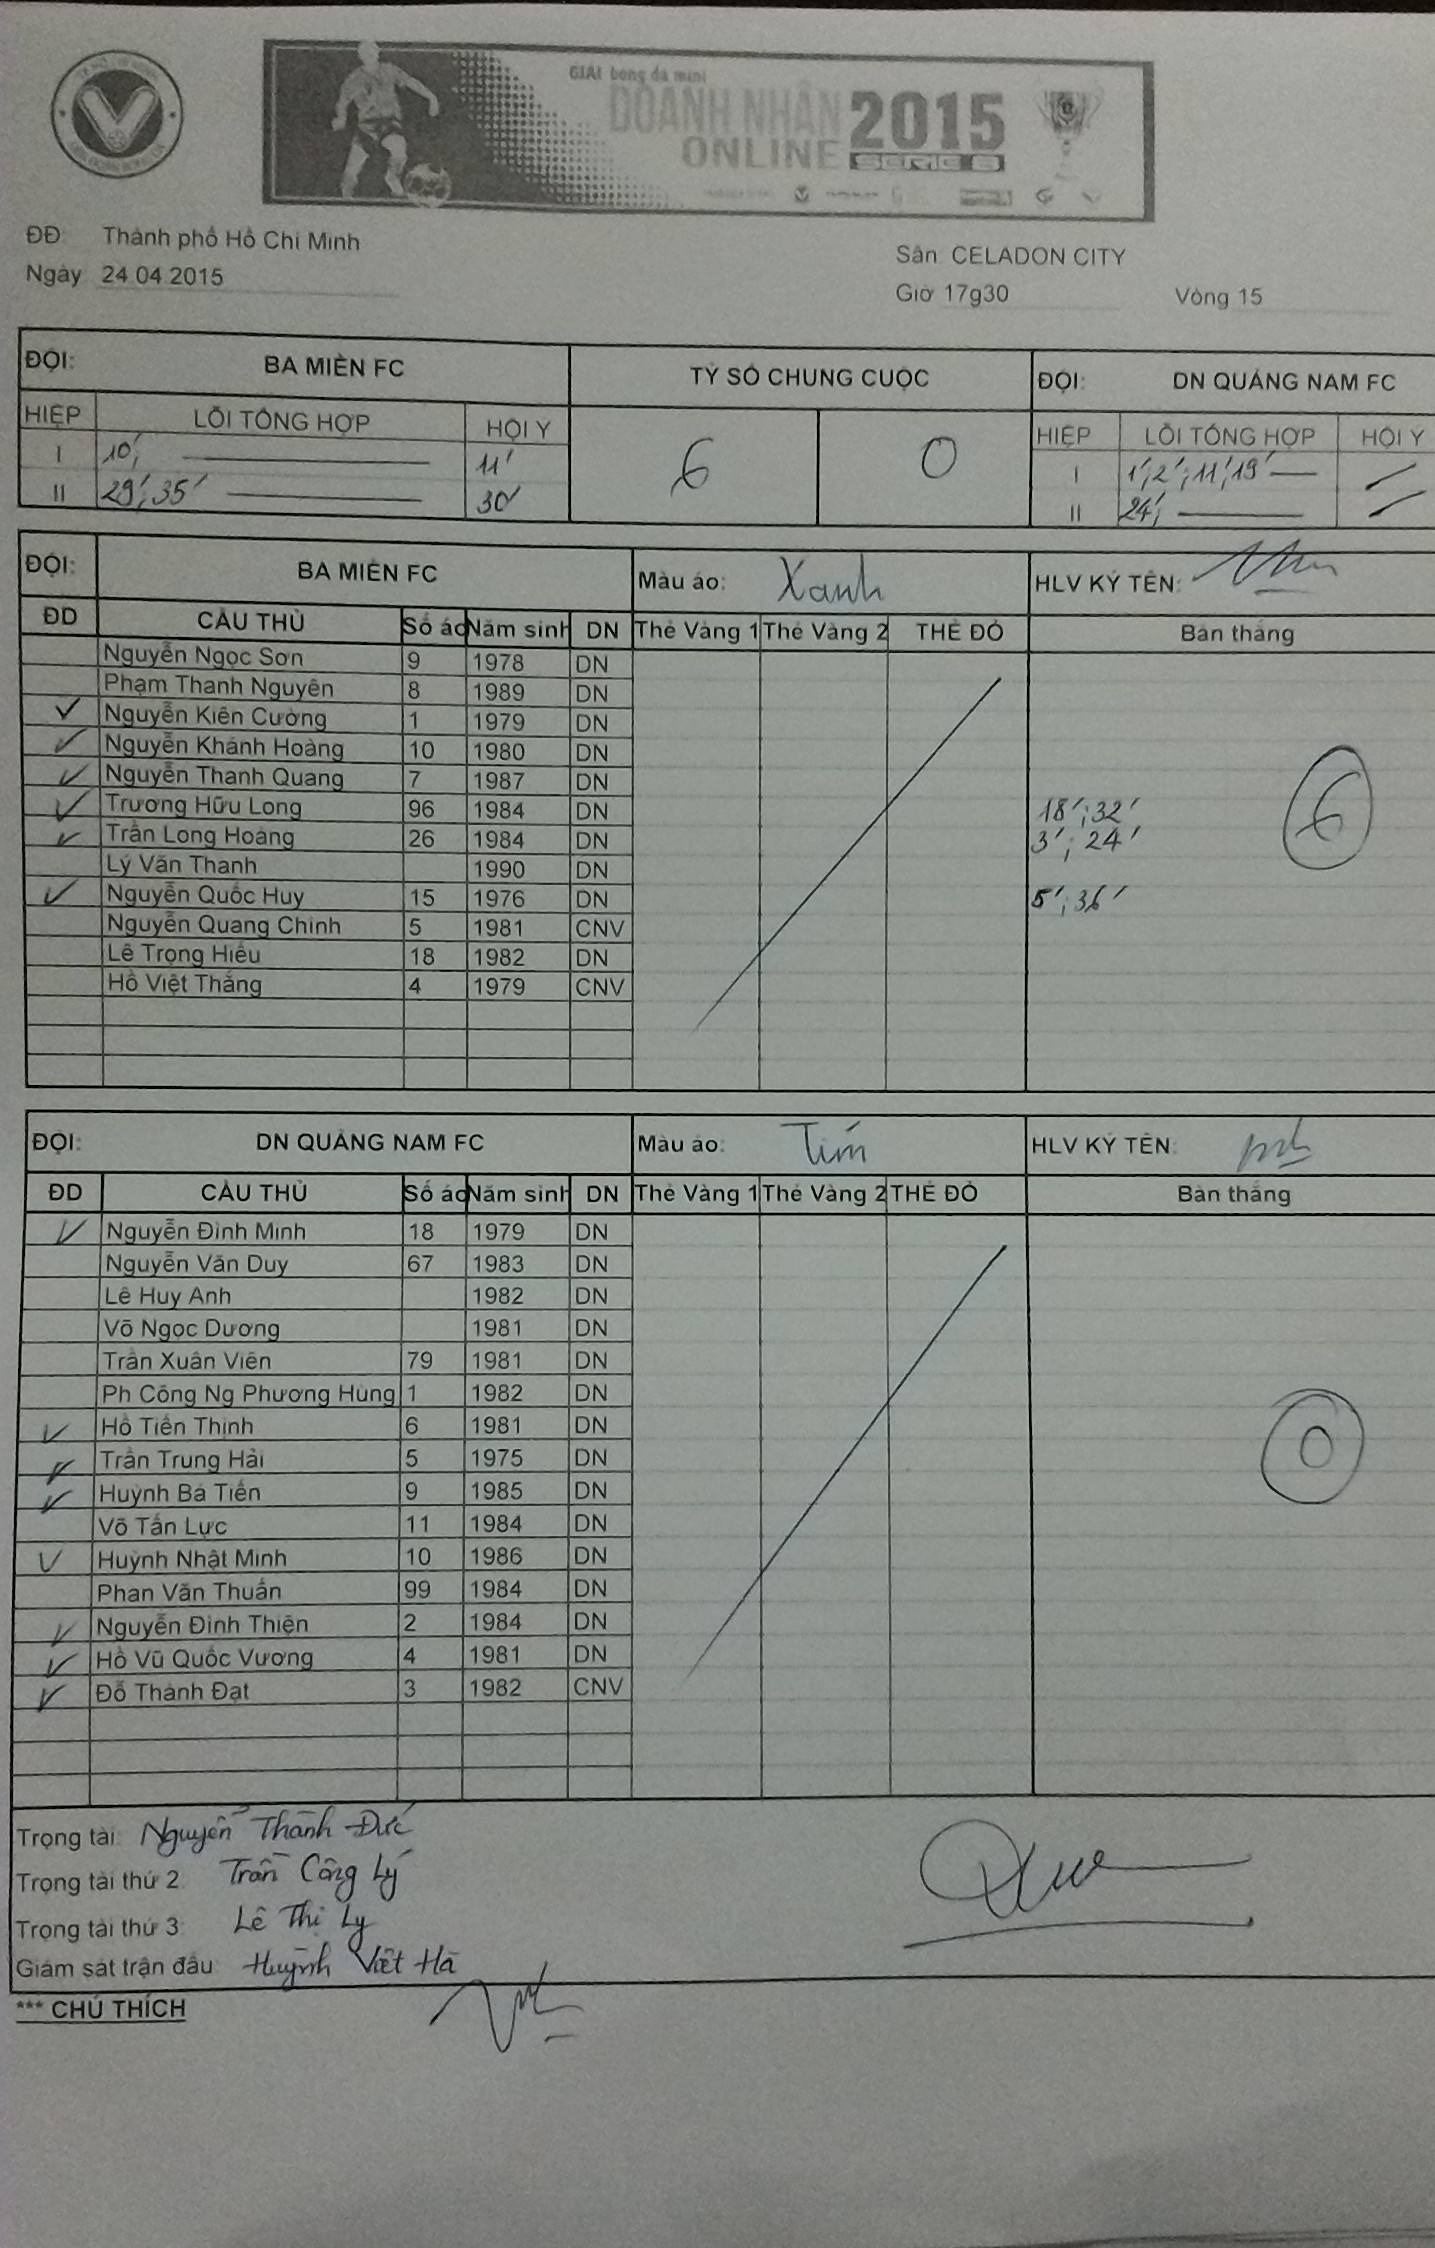 GIẢI bóng đá mini
DOANH NHÂN 2015
ONLINE SERIE B
ĐĐ: Thành phố Hồ Chí Minh
Sân: CELADON CITY
Ngày 24 04 2015
Giờ 17g30 Vòng 15
ĐỘI: BA MIỀN FC TỶ SỐ CHUNG CUỘC ĐỘI: DN QUẢNG NAM FC
HIỆP LỖI TỔNG HỢP HỘI Ý 6 0 HIỆP LỖI TỔNG HỢP HỘI Ý
I 10', 11' I 1', 2', 11', 19'
II 29', 35' 30' II 24',
ĐỘI: BA MIỀN FC Màu áo: Xanh HLV KÝ TÊN:
ĐD CẦU THỦ Số áo Năm sinh DN Thẻ Vàng 1 Thẻ Vàng 2 THẺ ĐỎ Bàn thắng
Nguyễn Ngọc Sơn 9 1978 DN
Phạm Thanh Nguyên 8 1989 DN
✓ Nguyễn Kiên Cường 1 1979 DN
✓ Nguyễn Khánh Hoàng 10 1980 DN
✓ Nguyễn Thanh Quang 7 1987 DN
✓ Trương Hữu Long 96 1984 DN 18'; 32'
✓ Trần Long Hoàng 26 1984 DN 3'; 24' 6
Lý Văn Thanh 1990 DN
✓ Nguyễn Quốc Huy 15 1976 DN 5'; 36'
Nguyễn Quang Chính 5 1981 CNV
Lê Trọng Hiếu 18 1982 DN
Hồ Việt Thắng 4 1979 CNV
ĐỘI: DN QUẢNG NAM FC Màu áo: Tím HLV KÝ TÊN:
ĐD CẦU THỦ Số áo Năm sinh DN Thẻ Vàng 1 Thẻ Vàng 2 THẺ ĐỎ Bàn thắng
✓ Nguyễn Đình Minh 18 1979 DN
Nguyễn Văn Duy 67 1983 DN
Lê Huy Anh 1982 DN
Võ Ngọc Dương 1981 DN
Trần Xuân Viên 79 1981 DN
Ph Công Ng Phương Hùng 1 1982 DN
✓ Hồ Tiến Thịnh 6 1981 DN 0
✓ Trần Trung Hải 5 1975 DN
✓ Huỳnh Bá Tiến 9 1985 DN
Võ Tấn Lực 11 1984 DN
✓ Huỳnh Nhật Minh 10 1986 DN
Phan Văn Thuấn 99 1984 DN
✓ Nguyễn Đình Thiện 2 1984 DN
✓ Hồ Vũ Quốc Vương 4 1981 DN
✓ Đỗ Thành Đạt 3 1982 CNV
Trọng tài: Nguyễn Thành Đức
Trọng tài thứ 2: Trần Công Lý
Trọng tài thứ 3: Lê Thị Ly
Giám sát trận đấu: Huỳnh Việt Hà
*** CHÚ THÍCH